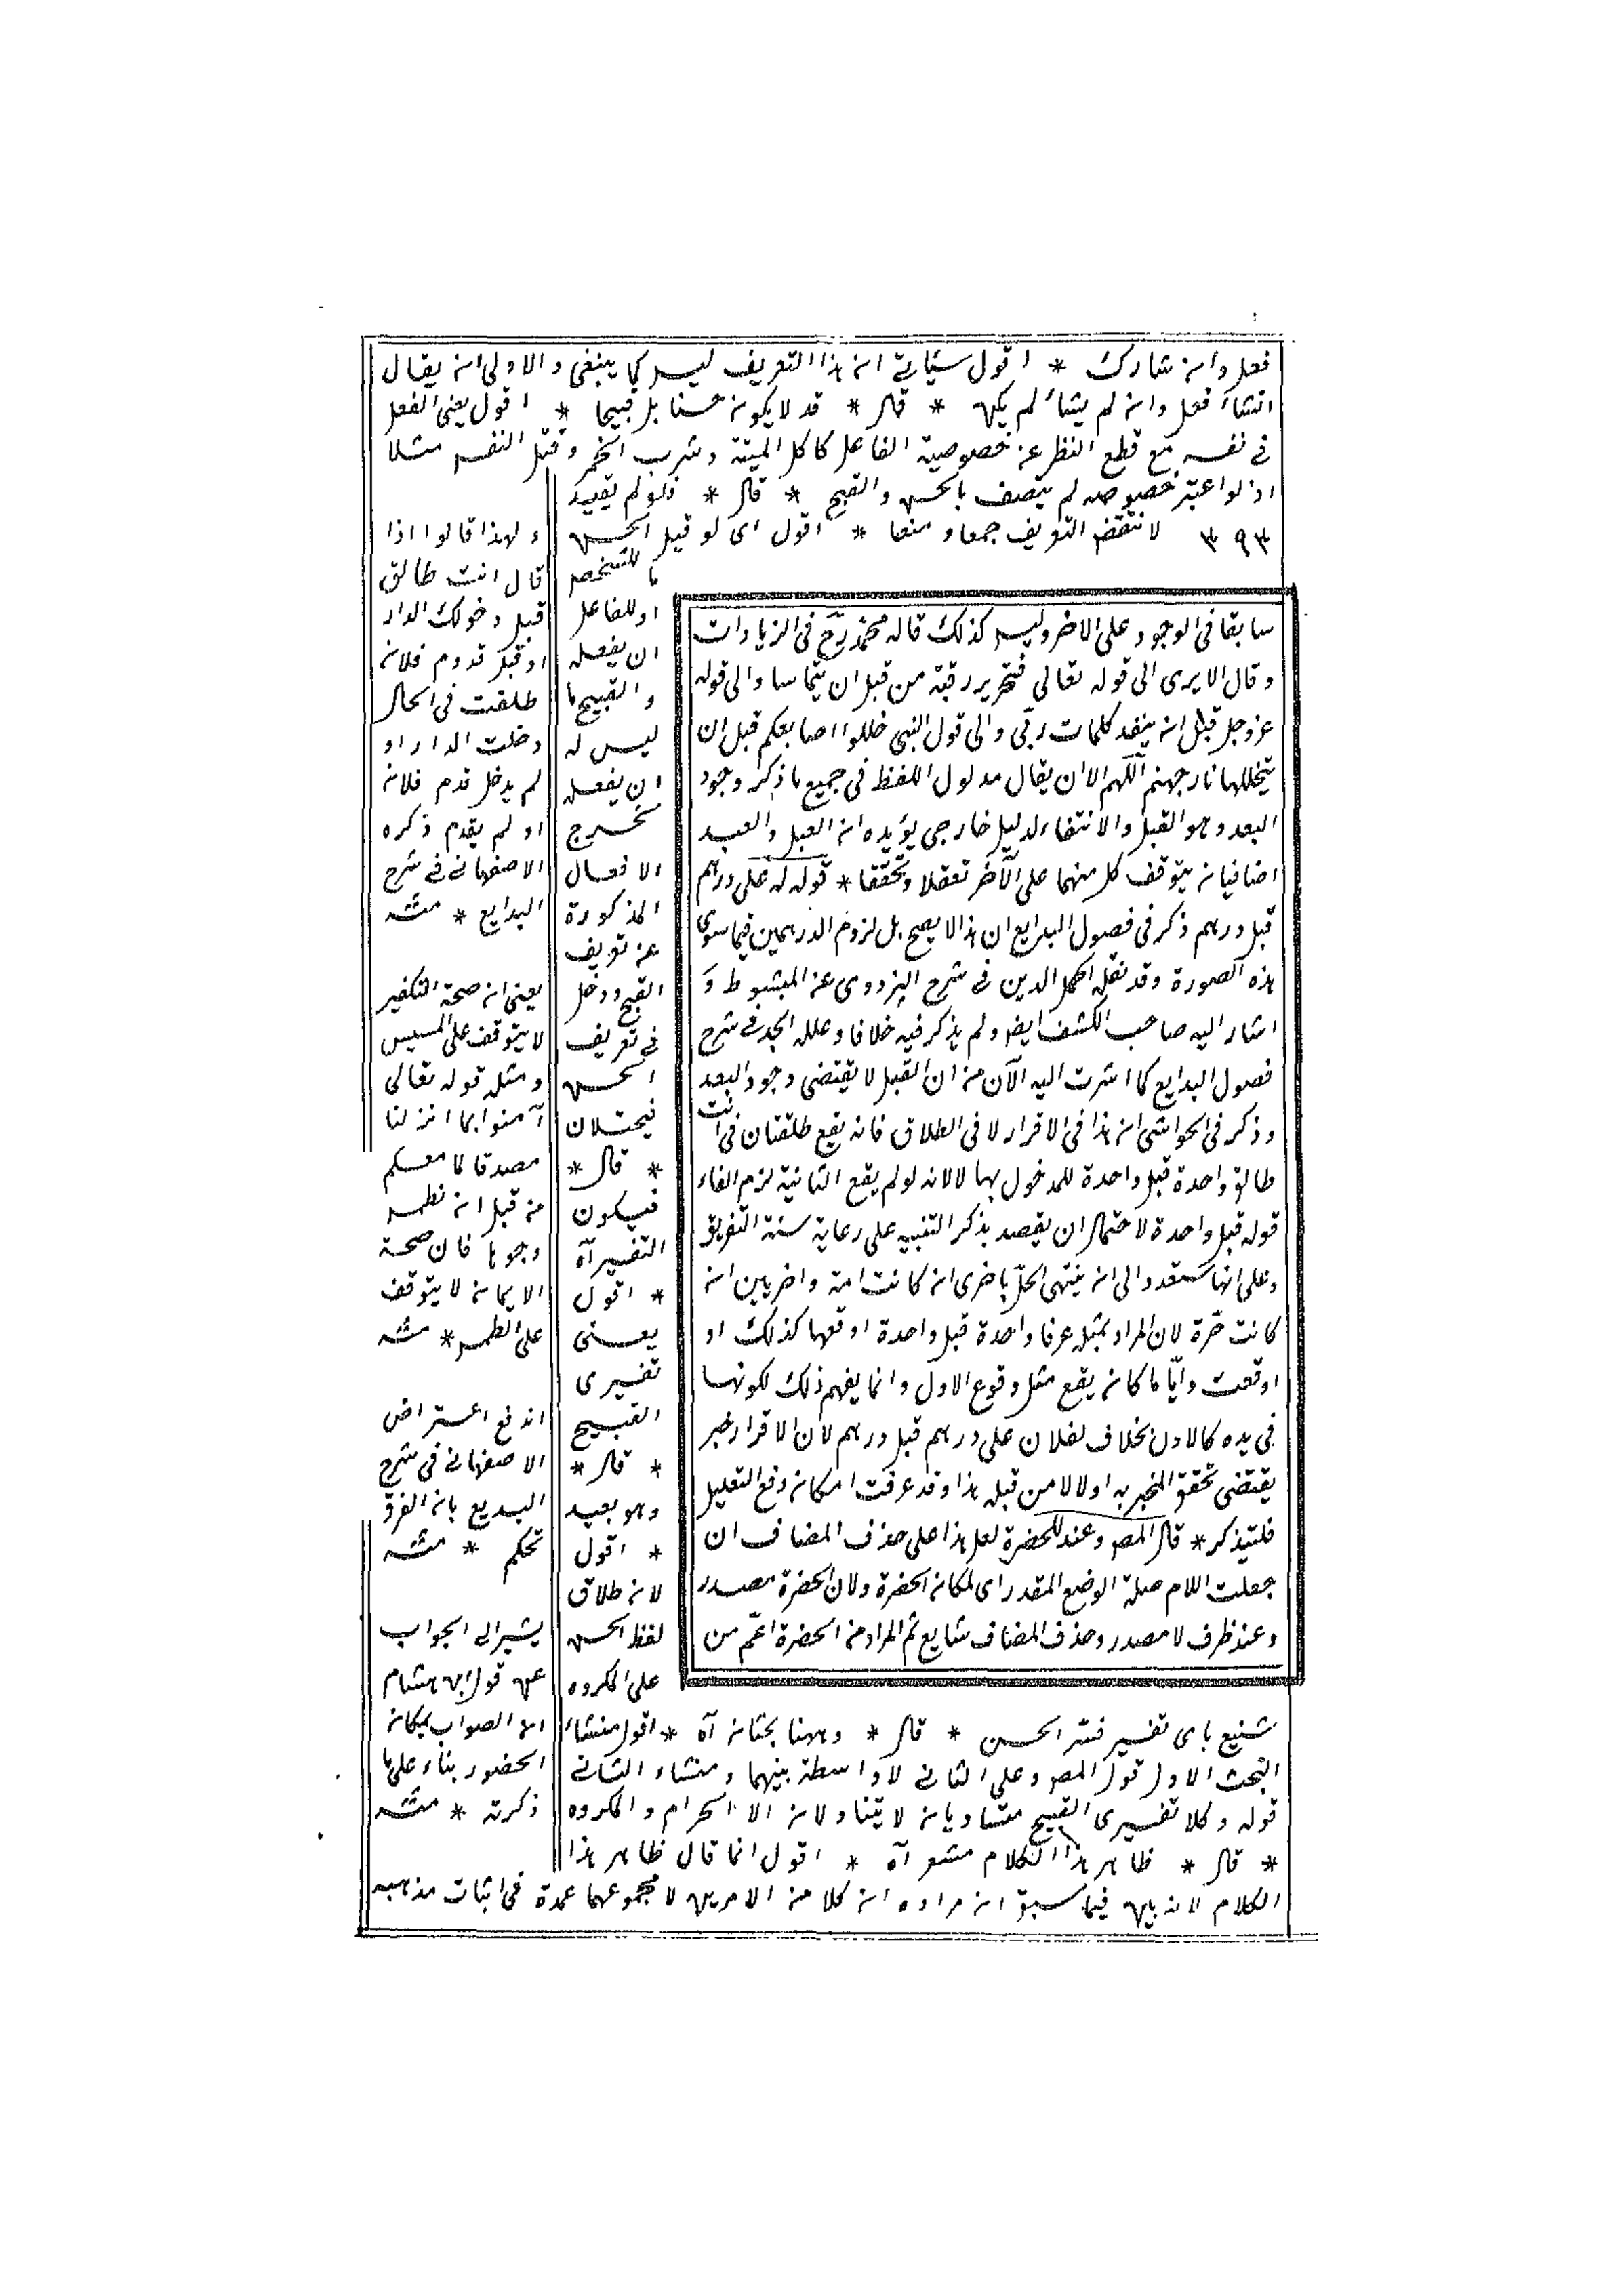 فعل وان شارك * اقول سيأتى ان هذا التعريف ليس كما ينبغى والاولى ان يقال
انشاء فعل وان لم يشأ لم يكن * قال * قد لا يكون حسنا بل قبيحا * اقول يعنى الفعل
فى نفسه مع قطع النظر عن خصوصية الفاعل كاكل الميتة وشرب الخمر وقتل النفس مثلا
اذ لو اعتبر خصوصه لم يتصف بالحسن والقبح * قال * فلو لم تقييد
٣٩٣ لانتقض التعريف جمعا ومنعا * اقول اى لو قيل الحسن
ما للشخص
او للفاعل
ان يفعله
والقبيح ما
ليس له
ان يفعله
لخرج
الافعال
المذكورة
عن تعريف
القبح ودخل
فى تعريف
الحسن
فيختلان
* قال *
فيكون
التفسير آه
* اقول
يعنى
تفسيرى
القبيح
* قال *
وهو بعيد
* اقول
لان طلاق
لفظ الحسن
على المكروه
شنيع باى تفسير فسر الحسن * قال * وههنا بحثان آه * اقول منشاء
البحث الاول قول المص وعلى الثانى لا واسطة بينهما ومنشاء الثانى
قوله وكلا تفسيرى القبيح متساويان لا يتناولان الا الحرام والمكروه
* قال * ظاهر هذا الكلام مشعر آه * اقول انما قال ظاهر هذا
الكلام لانه بين فيما سبق ان مراده ان كلا من الامرين لا مجموعهما عمدة فى اثبات مذهبه
سابقا فى الوجود على الاخر وليس كذلك قاله محمد رح فى الزيادات
وقال الا يرى الى قوله تعالى فتحرير رقبة من قبل ان يتماسا والى قوله
عز وجل قبل ان ينفد كلمات ربى والى قول النبى خللوا اصابعكم قبل ان
يتخللها نار جهنم اللهم الا ان يقال مدلول اللفظ فى جميع ما ذكر وجود
البعد وهو القبل والانتفاء لدليل خارجى يؤيده ان القبل والبعد
اضافيان يتوقف كل منهما على الآخر تعقلا وتحققا * قوله له على درهم
قبل درهم ذكر فى فصول البدايع ان هذا لا يصح بل لزوم الدرهمين فيما سوى
هذه الصورة وقد نقله اكمل الدين فى شرح البزدوى عن المبسوط و
اشار اليه صاحب الكشف ايض ولم يذكر فيه خلافا وعلله الجد فى شرح
فصول البدايع كما اشرت اليه الآن من ان القبل لا يقتضى وجود البعد
وذكر فى الحواشى ان هذا فى الاقرار لا فى الطلاق فانه يقع طلقتان فى انت
طالق واحدة قبل واحدة للمدخول بها لا لانه لو لم يقع الثانية لزم الغاء
قوله قبل واحدة لاحتمال ان يقصد بذكر التنبيه على رعاية سنة التفريق
وعلى انها ستعدد الى ان ينتهى الحل باخرى ان كانت امة واخريين ان
كانت حرة لان المراد بمثله عرفا واحدة قبل واحدة اوقعها كذلك او
اوقعت وايا ما كان يقع مثل وقوع الاول وانما يفهم ذلك لكونها
فى يده كالاول بخلاف لفلان على درهم قبل درهم لان الاقرار خبر
يقتضى تحقق المخبر به اولا لا من قبل هذا وقد عرفت امكان دفع التعليل
فلتتذكر * قال المص وعند للحضرة لعل هذا على حذف المضاف ان
جعلت اللام صلة الوضع المقدر اى لمكان الحضرة ولان الحضرة مصدر
وعند ظرف لا مصدر وحذف المضاف شايع ثم المراد من الحضرة اعم من
ولهذا قالوا اذا
قال انت طالق
قبل دخولك الدار
او قبل قدوم فلان
طلقت فى الحال
دخلت الدار او
لم يدخل قدم فلان
او لم يقدم ذكره
الاصفهانى فى شرح
البدايع * منه
يعنى ان صحة التكفير
لا يتوقف على المسيس
ومثله قوله تعالى
آمنوا بما انزلنا
مصدقا لما معكم
من قبل ان نطمس
وجوها فان صحة
الايمان لا يتوقف
على الطمس * منه
اندفع اعتراض
الاصفهانى فى شرح
البديع بان الفرق
تحكم * منه
يشير الى الجواب
عن قول ابن هشام
ان الصواب لمكان
الحضور بناء على ما
ذكرته * منه